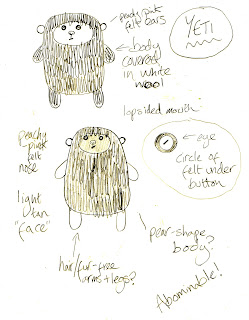 peachy pink
felt ears
YETI
body
covered
in white
wool
lopsided mouth
eye
circle of
felt under
button
peachy
pink
felt
nose
light
tan
"face"
pear-shape
body?
hair/fur-free
arms + legs?
Abominable!